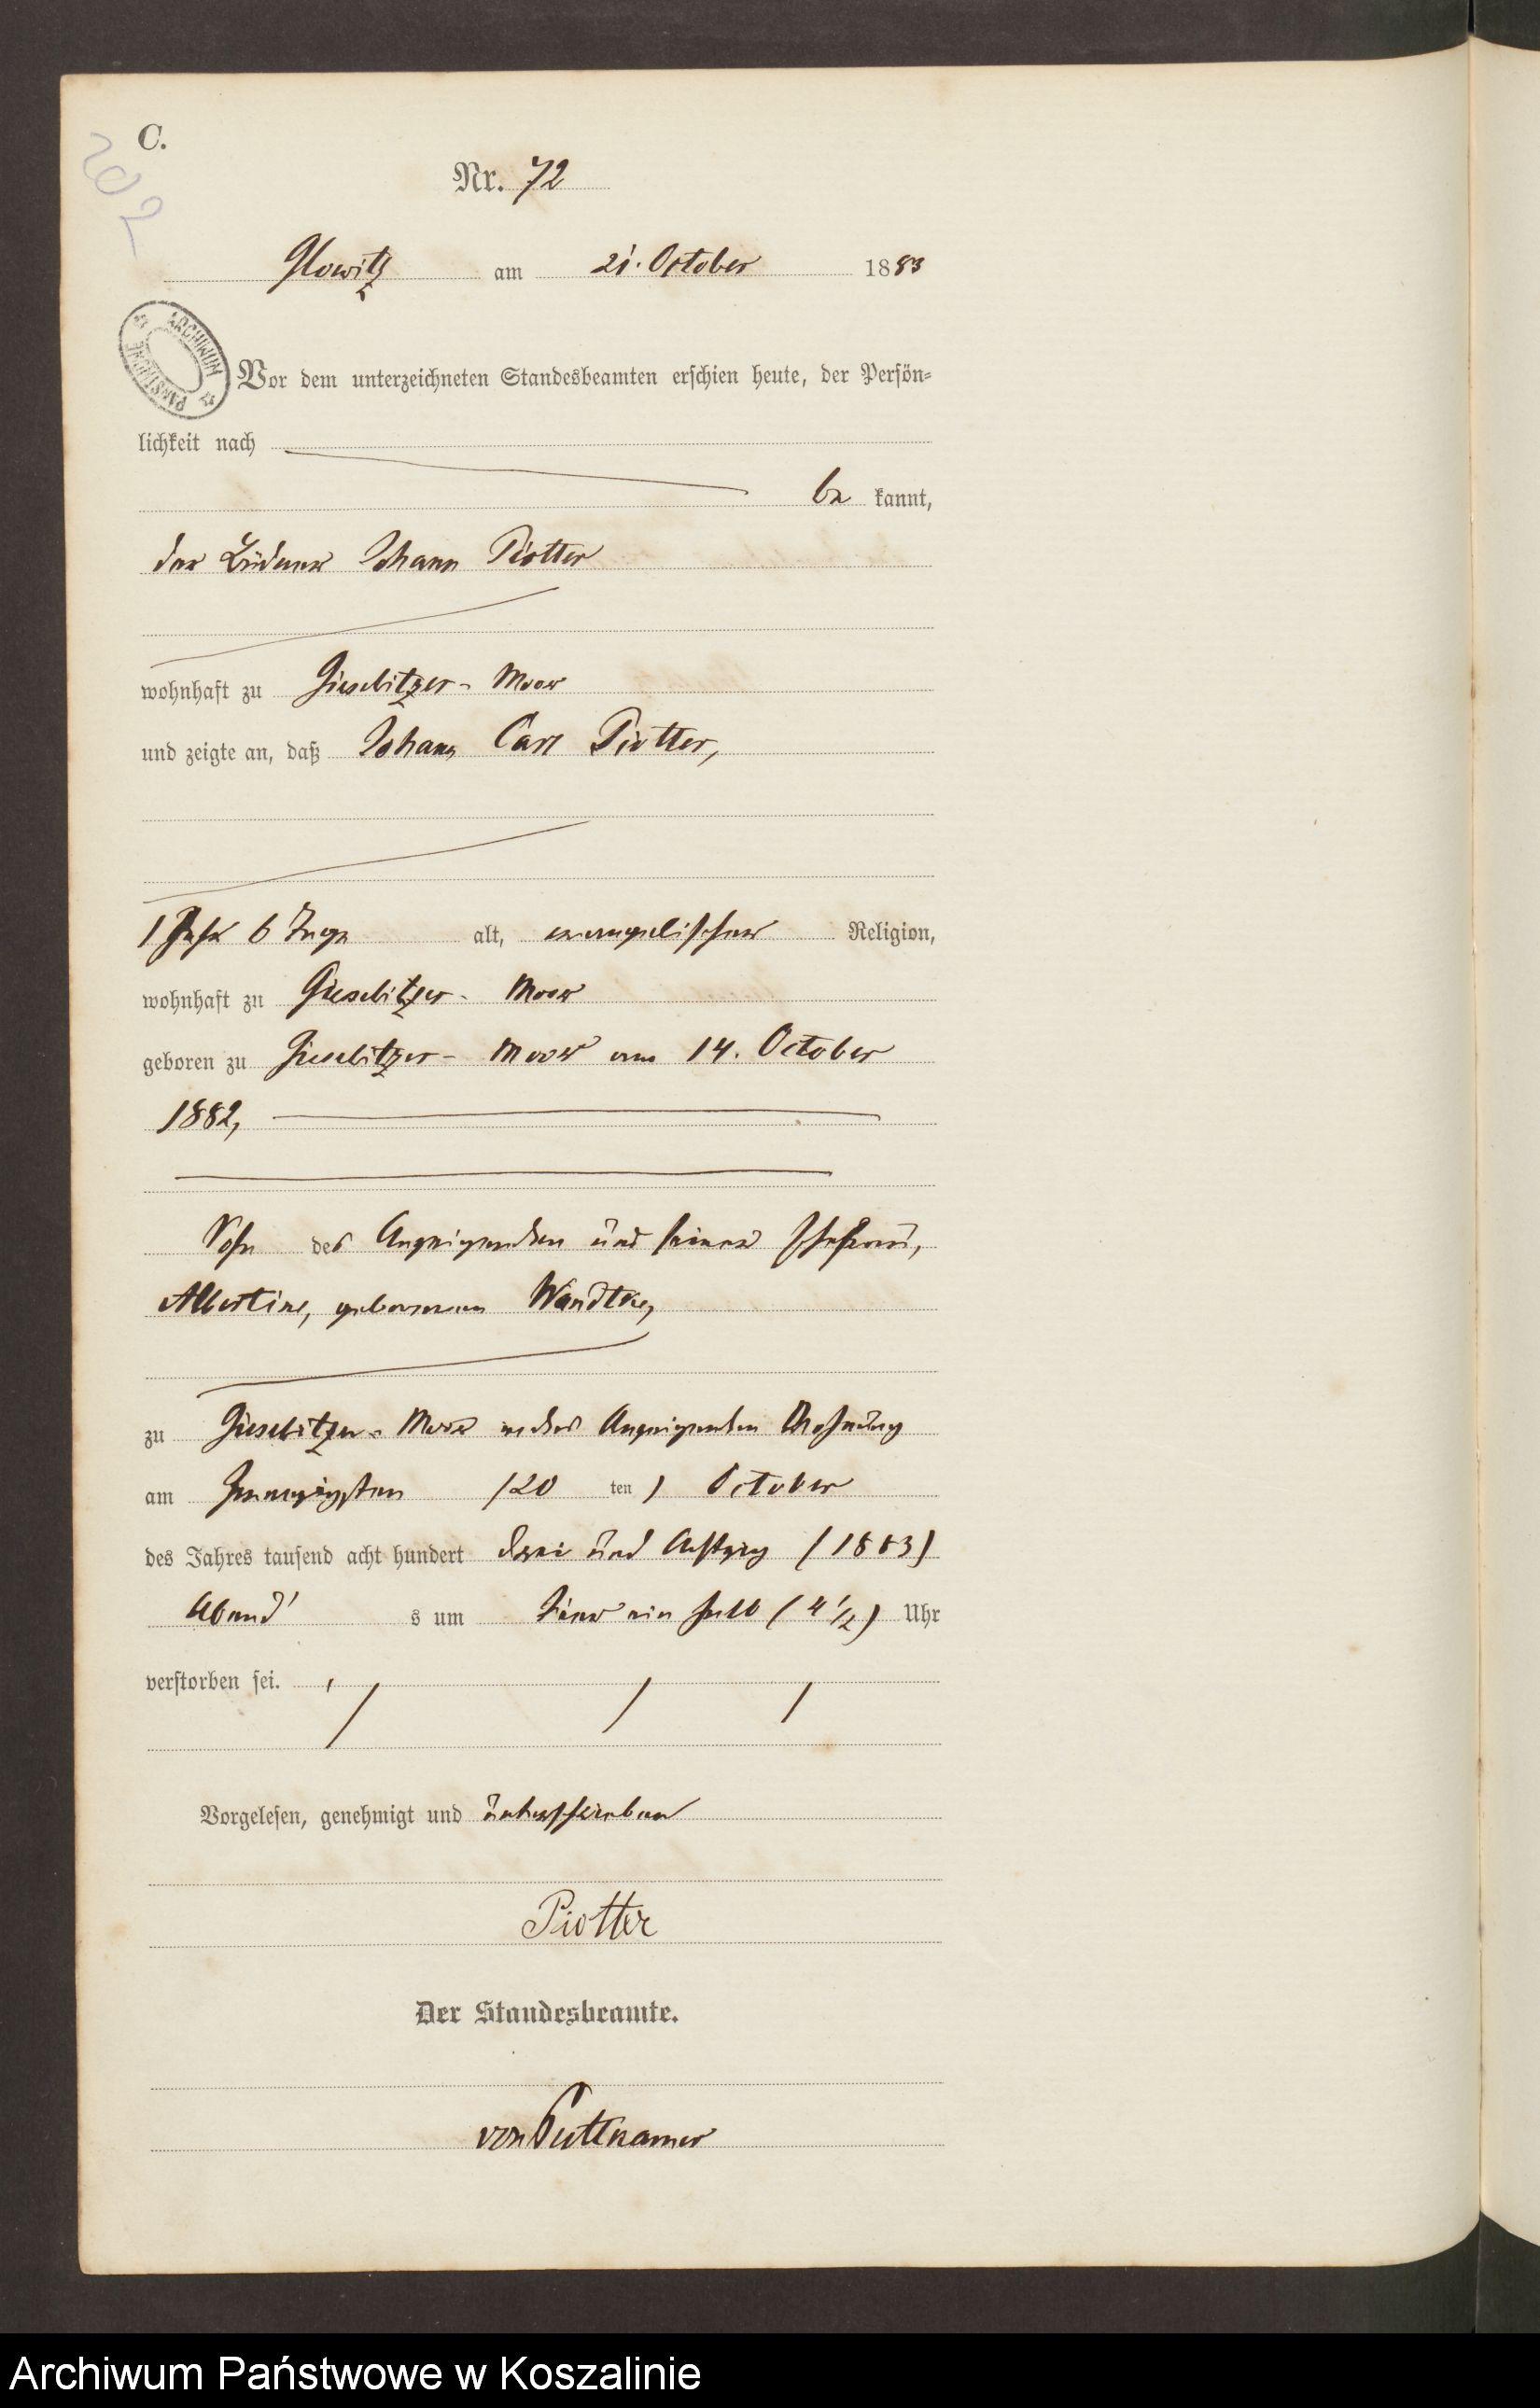 C.
202
Nr. 72
Glowitz am 21. October 1883
ARCHIWUM PAŃSTWOWE
Vor dem unterzeichneten Standesbeamten erschien heute, der Persön-
lichkeit nach
be kannt,
der Büdner Johann Piotter
wohnhaft zu Gieselitzer-Moor
und zeigte an, daß Johann Carl Piotter,
1 Jahr 6 Tage alt, evangelischer Religion,
wohnhaft zu Gieselitzer-Moor
geboren zu Gieselitzer-Moor am 14. October
1882,
Sohn des Anzeigenden und seiner Ehefrau,
Albertine, geborenen Wandtke,
zu Gieselitzer-Moor in des Anzeigenden Wohnung
am zwanzigsten (20 ten) October
des Jahres tausend acht hundert drei und Achtzig (1883)
Abend s um vier ein halb (4 1/2) Uhr
verstorben sei.
Vorgelesen, genehmigt und unterschrieben
Piotter
Der Standesbeamte.
von Puttkamer
Archiwum Państwowe w Koszalinie